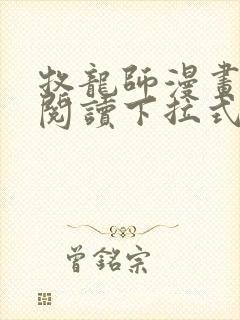 牧龍師漫畫
閱讀下拉式
曾銘宗